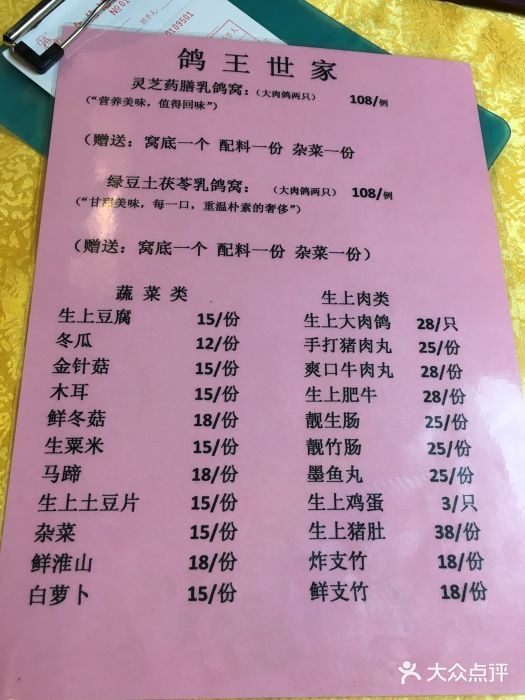 №01
0103501
鸽王世家
灵芝药膳乳鸽窝：（大肉鸽两只） 108/例
（“营养美味，值得回味”）
（赠送：窝底一个 配料一份 杂菜一份
绿豆土茯苓乳鸽窝： （大肉鸽两只） 108/例
（“甘甜美味，每一口，重温朴素的奢侈”）
（赠送：窝底一个 配料一份 杂菜一份）
蔬菜类
生上豆腐 15/份
冬瓜 12/份
金针菇 15/份
木耳 15/份
鲜冬菇 18/份
生粟米 15/份
马蹄 18/份
生上土豆片 15/份
杂菜 15/份
鲜淮山 18/份
白萝卜 15/份
生上肉类
生上大肉鸽 28/只
手打猪肉丸 25/份
爽口牛肉丸 28/份
生上肥牛 28/份
靓生肠 25/份
靓竹肠 25/份
墨鱼丸 25/份
生上鸡蛋 3/只
生上猪肚 38/份
炸支竹 18/份
鲜支竹 18/份
大众点评